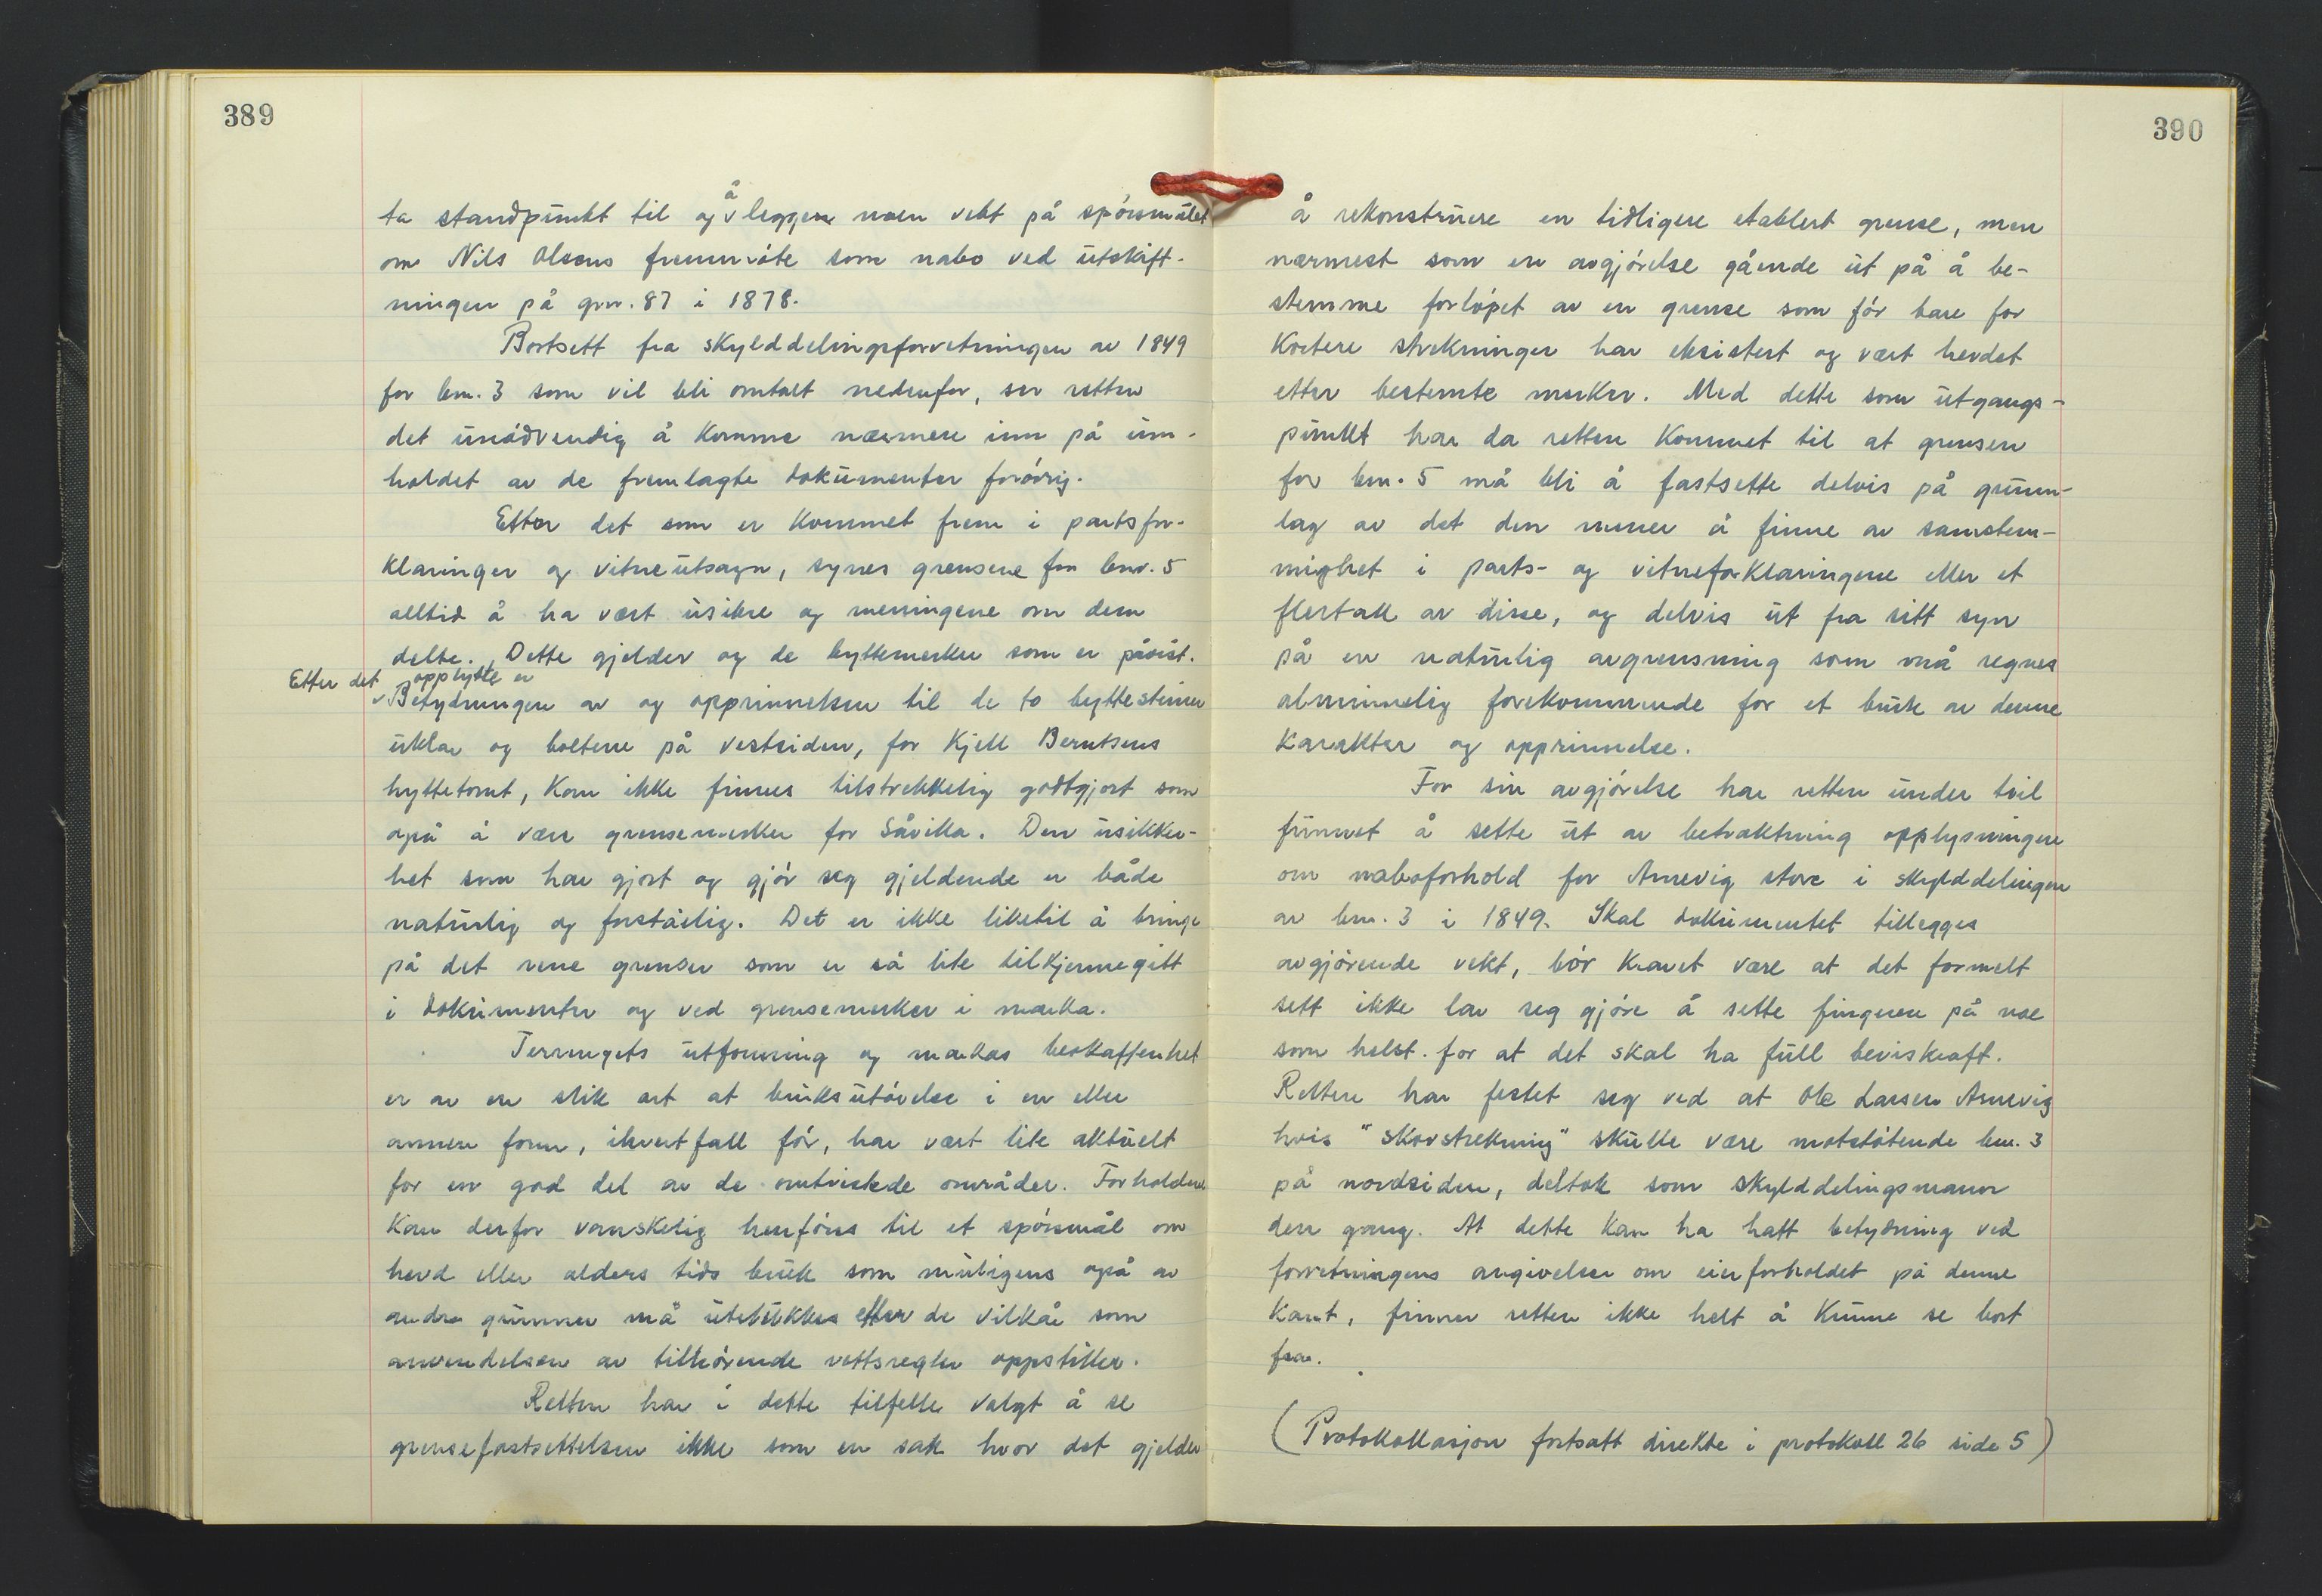 389
ta standpunkt til og å leggen noen vekt på spörsmålet
om Nils Olsens fremmöte som nabo ved utskift-
ningen på gnr. 87 i 1878.
Bortsett fra skylddelingsforretningen av 1849
for bnr. 3 som vil bli omtalt nedenfor, ser retten
det unödvendig å komme nærmere inn på inn-
holdet av de fremlagte dokumenter forövrig.
Etter det som er kommet frem i partsfor-
klaringer og vitneutsagn, synes grensene for bnr. 5
alltid å ha vært usikre og meningene om dem
delte. Dette gjelder og de byttemerker som er påvist.
Etter det opplyste er
Betydningen av og opprinnelsen til de to byttesteiner
uklar og boltene på vestsiden, for Kjell Berntsens
hyttetomt, kan ikke finnes tilstrekkelig godtgjort som
også å være grensemerker for Såvika. Den usikker-
het som har gjort og gjör seg gjeldende er både
naturlig og forståelig. Det er ikke liketil å bringe
på det rene grenser som er så lite tilkjennegitt
i dokumenter og ved grensemerker i marka.
Terrengets utforming og markas beskaffenhet
er av en slik art at bruksutövelse i en eller
annen form, ihvertfall för, har vært lite aktuelt
for en god del av de omtvistede områder. Forholdene
kan derfor vanskelig henföres til et spörsmål om
hevd eller alders tids bruk som muligens også av
andre grunner må utelukkes etter de vilkår som
anvendelsen av tilhörende rettsregler oppstiller.
Retten har i dette tilfelle valgt å se
grensefastsettelsen ikke som en sak hvor det gjelder
390
å rekonstruere en tidligere etablert grense, men
nærmest som en avgjörelse gående ut på å be-
stemme forlöpet av en grense som för bare for
kortere strekninger har eksistert og vært hevdet
etter bestemte merker. Med dette som utgangs-
punkt har da retten kommet til at grensen
for bnr. 5 må bli å fastsette delvis på grunn-
lag av det den mener å finne av samstem-
mighet i parts- og vitneforklaringene eller et
flertall av disse, og delvis ut fra sitt syn
på en naturlig avgrensning som må regnes
alminnelig forekommende for et bruk av denne
karakter og opprinnelse.
For sin avgjörelse har retten under tvil
funnet å sette ut av betraktning opplysningene
om naboforhold for Arnevig store i skylddelingen
av bnr. 3 i 1849. Skal dokumentet tillegges
avgjörende vekt, bör kravet være at det formelt
sett ikke lar seg gjöre å sette fingeren på noe
som helst for at det skal ha full beviskraft.
Retten har festet seg ved at Ole Larsen Arnevig
hvis "skovstrekning" skulle være motstötende bnr. 3
på nordsiden, deltok som skylddelingsmann
den gang. At dette kan ha hatt betydning ved
forretningens angivelse om eierforholdet på denne
kant, finner retten ikke helt å kunne se bort
fra.
(Protokollasjon fortsatt direkte i protokoll 26 side 5)